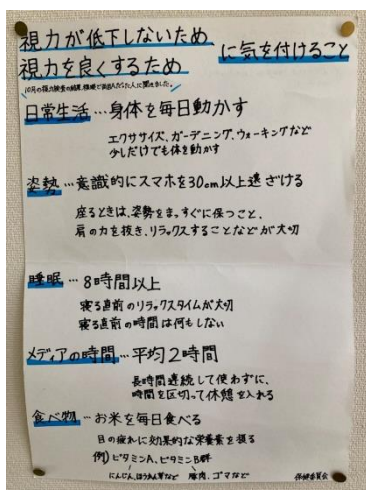 視力が低下しないため
視力を良くするため
に気を付けること
10月の視力検査の結果、裸眼で両目Aだった人に聞きました。
日常生活…身体を毎日動かす
エクササイズ、ガーデニング、ウォーキングなど
少しだけでも体を動かす
姿勢…意識的にスマホを30cm以上遠ざける
座るときは、姿勢をまっすぐに保つこと、
肩の力を抜き、リラックスすることなどが大切
睡眠…8時間以上
寝る直前のリラックスタイムが大切
寝る直前の時間は何もしない
メディアの時間…平均2時間
長時間連続して使わずに、
時間を区切って休憩を入れる
食べ物…お米を毎日食べる
目の疲れに効果的な栄養素を摂る
例)ビタミンA、ビタミンB群
にんじん、ほうれん草など 豚肉、ゴマなど
保健委員会